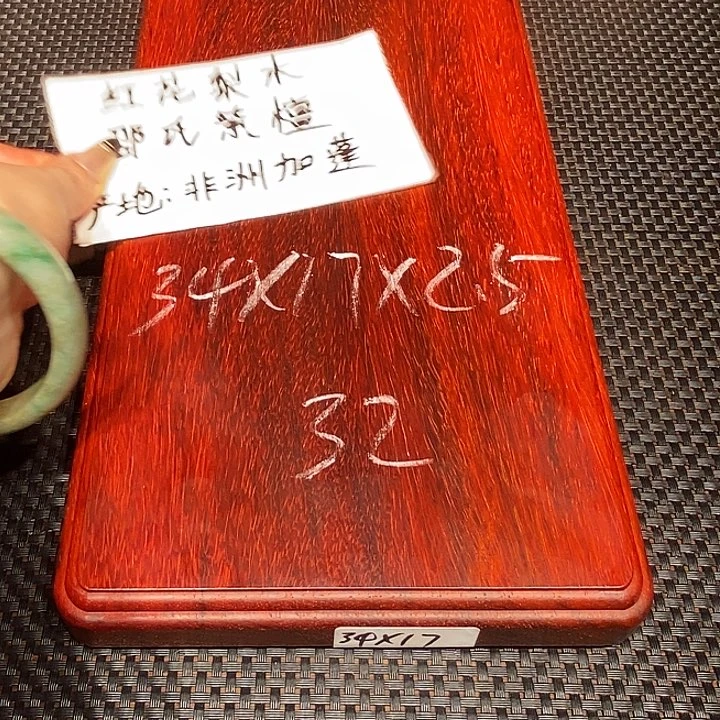 红花梨木
邵氏紫檀
产地:非洲加蓬
34X17X2.5
32
34X17